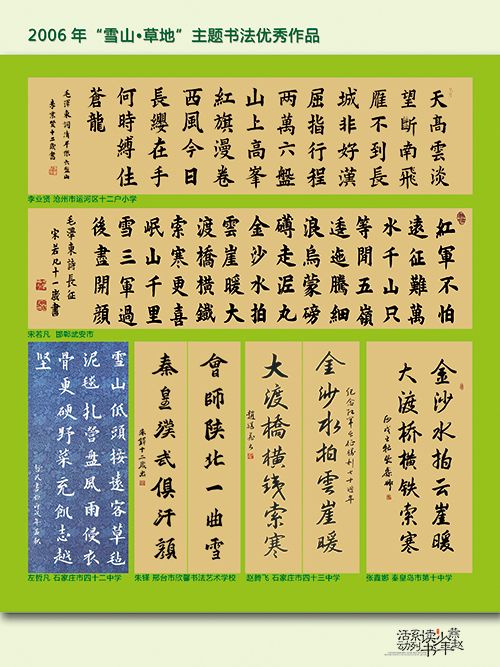 2006 年“雪山•草地”主题书法优秀作品
天高雲淡
望斷南飛
雁不到長
城非好漢
屈指行程
兩萬六盤
山上高峯
紅旗漫卷
西風今日
長纓在手
何時縛住
蒼龍
毛澤東詞清平樂六盤山
李業賢十二歲書
李业贤 沧州市运河区十二户小学
紅軍不怕
遠征難萬
水千山只
等閒五嶺
逶迤騰細
浪烏蒙磅
礡走泥丸
金沙水拍
雲崖暖大
渡橋橫鐵
索寒更喜
岷山千里
雪三軍過
後盡開顏
毛澤東詩長征
宋若凡十一歲書
宋若凡 邯郸武安市
雪山低頭迎遠客草毡
泥毯扎營盤風雨侵衣
骨更硬野菜充飢志越
坚
左哲凡 石家庄市四十二中学
會師陝北一曲雪
秦皇漢武俱汗顏
朱鐸十二歲書
朱铎 邢台市欣馨书法艺术学校
纪念红军长征勝利七十周年
金沙水拍雲崖暖
大渡橋橫鐵索寒
赵腾飞 石家庄市四十三中学
金沙水拍云崖暖
大渡桥横铁索寒
张鑫娜 秦皇岛市第十中学
燕赵少年读书系列活动